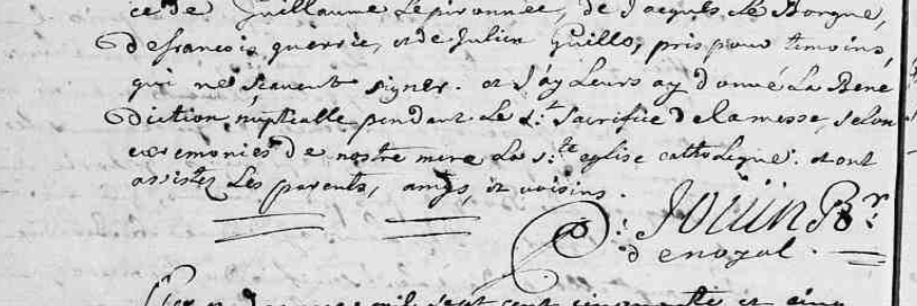 ce de Guillaume Lepironnec, de Jacques Le Borgne,
de francois querric, et de Julien Guillo, pris pour temoins
qui ne scavent signer. et Leurs ay donné La Bene
diction nuptialle pendant Le St. Sacrifice de la messe, selon
ceremonies de nostre mere La ste. eglise catholique. et ont
assistez Les parents, amys, et voisins.
P: Joüin Br.
denoyal.
mil sept cent cinquante et cinq